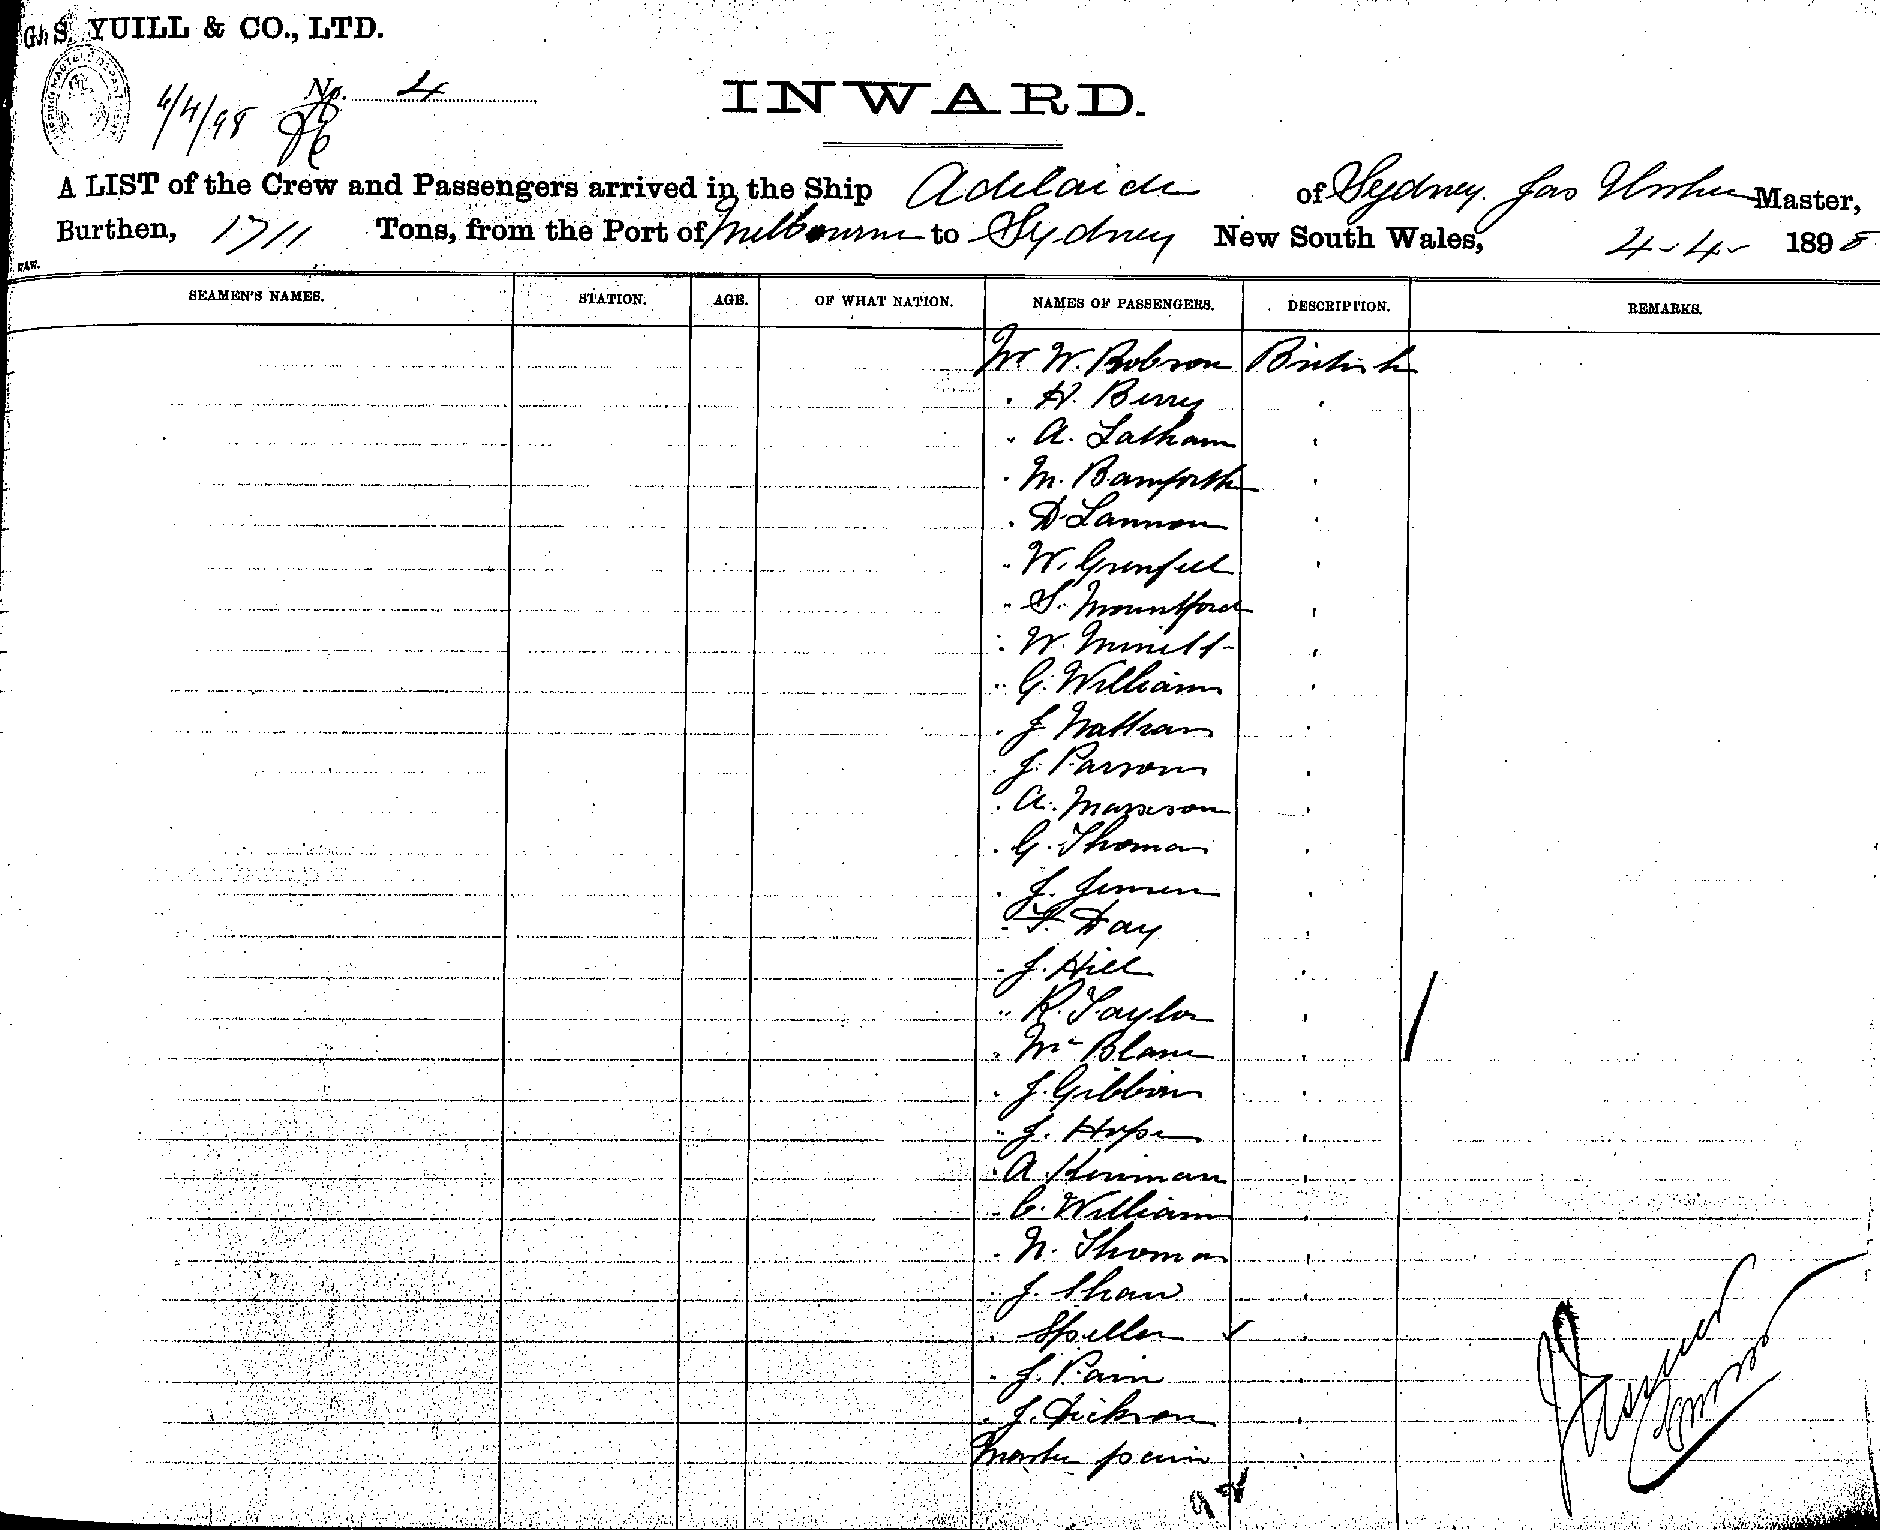 G. S. YUILL & CO., LTD.
4/4/98 No. 4
INWARD.
A LIST of the Crew and Passengers arrived in the Ship Adelaide of Sydney. Jas Master,
Burthen, 1711 Tons, from the Port of Melbourne to Sydney New South Wales, 4-4- 1898
SEAMEN'S NAMES. STATION. AGE. OF WHAT NATION. NAMES OF PASSENGERS. DESCRIPTION. REMARKS.
Mr W. Robson British
" H. Berry "
" A. Latham "
" M. Bamforth "
" D Lannon "
" W. Grenfell "
" S. Mountford "
" W. Minett "
" G. Williams "
" J Nattran "
" J. Parsons "
" A. "
" G. Thomas "
" J. Jensen "
" F. Day "
" J. Hill "
" R. Taylor "
" Mc Blane "
" J. Gibbons "
" J. Hope "
" A. "
" C. Williams "
" N. Thomas "
" J. Shaw "
" Spiller "
" J. Pain "
" J. Dickson "
Master pain "